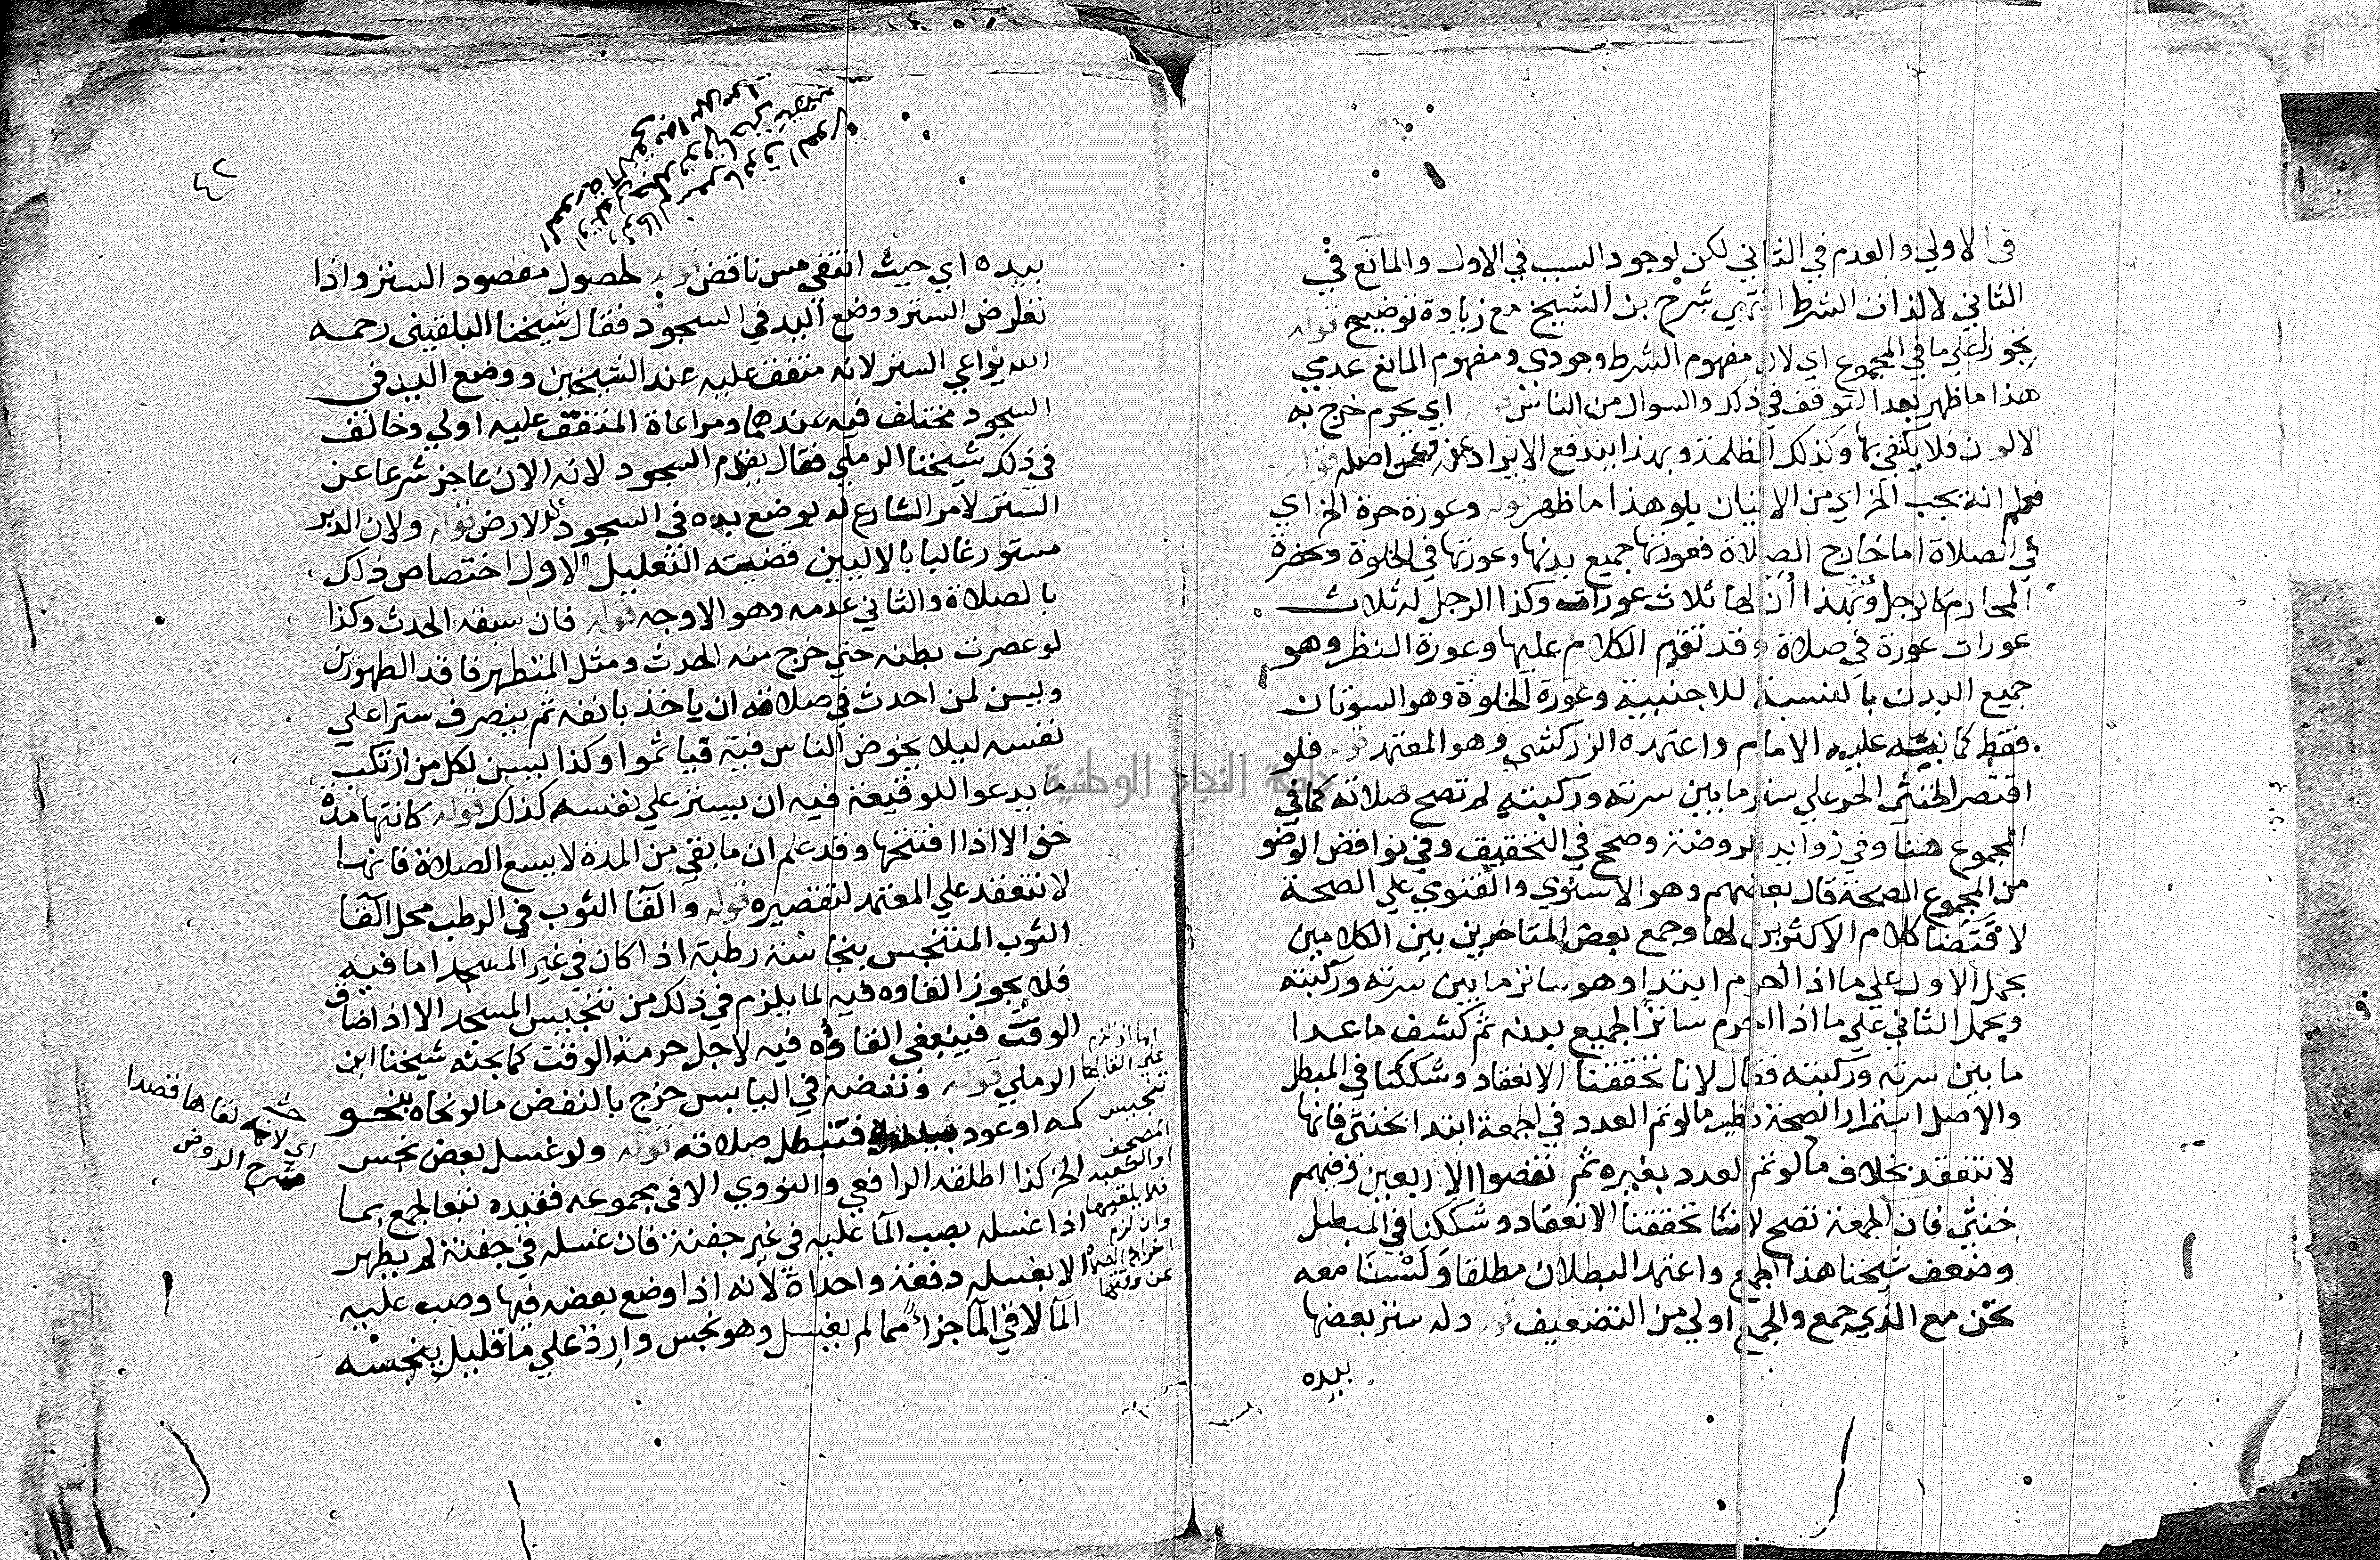 في الاولي والعدم في الثاني لكن لوجود السبب في الاول والمانع في
الثاني لا لذات الشرط انتهي شرح بن الشيخ مع زيادة توضيح قوله
يجوز علي ما في المجموع اي لان مفهوم الشرط وجودي ومفهوم المانع عدمي
هذا ما ظهر بعد التوقف في ذلك والسوال من الناس قوله اي يحرم خرج به
الالوان فلا يكتفي بها وكذلك الظلمة وبهذا يندفع الايراد عن اصله قوله
فعلم انه يجب الخ اي من الاتيان بلو هذا ما ظهر قوله وعورة حرة الخ اي
في الصلاة اما خارج الصلاة فعورتها جميع بدنها وعورتها في الخلوة وحضرة
المحارم كالرجل وبهذا ان لها ثلاث عورات وكذا الرجل له ثلاث
عورات عورة في صلاة وقد تقدم الكلام عليها وعورة النظر وهو
جميع البدن بالنسبة للاجنبية وعورة الخلوة وهو السوتان
فقط كما نبه عليه الامام واعتمده الزركشي وهو المعتمد قوله فلو
اقتصر الخنثي الحر علي ستر ما بين سرته وركبته لم تصح صلاته كما في
المجموع هنا وفي زوايد الروضة وصحح في التحقيق وفي نواقض الوضو
من المجموع الصحة قال بعضهم وهو الاسنوي والفتوي علي الصحة
لاقتضا كلام الاكثرين لها وجمع بعض المتاخرين بين الكلامين
بحمل الاول علي ما اذا احرم ابتداو هو ساتر ما بين سرته وركبته
ويحمل الثاني علي ما اذا احرم ساترا لجميع بدنه ثم كشف ما عدا
ما بين سرته وركبته فقال لانا تحققنا الانعقاد وشككنا في المبطل
والاصل استمرار الصحة نظير ما لو تم العدد في الجمعة ابتدا بخنثي فانها
لا تنعقد بخلاف ما لو تم العدد بغيره ثم نقضوا الاربعين وفيهم
خنثي فان الجمعة تصح لاننا تحققنا الانعقاد وشككنا في المبطل
وضعف شيخنا هذا الجمع واعتمد البطلان مطلقا ولسنا معه
نحن مع الذي جمع والجمع اولي من التضعيف قوله وله ستر بعضها
بيده
٤٢
بيده اي حيث انتفي مس ناقض قوله لحصول مقصود الستر واذا
تعارض الستر ووضع اليد في السجود فقال شيخنا البلقيني رحمه
الله يراعي الستر لانه متفق عليه عند الشيخين ووضع اليد في
السجود مختلف فيه عندهما ومراعاة المتفق عليه اولي وخالف
في ذلك شيخنا الرملي فقال يقدم السجود لانه الان عاجز شرعا عن
الستر لامر الشارع له بوضع يده في السجود علي الارض قوله ولان الدبر
مستور غالبا بالاليين قضيته التعليل الاول اختصاص ذلك
بالصلاة والثاني عدمه وهو الاوجه قوله فان سبقه الحدث وكذا
لو عصرت بطنه حتي خرج منه الحدث ومثل المتطهر فاقد الطهورين
ويسن لمن احدث في صلاته ان ياخذ بانفه ثم ينصرف سترا علي
نفسه ليلا يخوض الناس فيه فياثموا وكذا يسن لكل من ارتكب
ما يدعوا للوقيعة فيه ان يستر علي نفسه كذلك قوله كانتهامدة
خف الا اذا افتتحها وقد علم ان ما بقي من المدة لا يسع الصلاة فانها
لا تنعقد علي المعتمد لتقصيره قوله والقا الثوب في الرطب محل القا
الثوب المتنجس بنجاسة رطبة اذا كان في غير المسجد اما فيه
فلا يجوز القاوه فيه لما يلزم في ذلك من تنجيس المسجد الا اذا ضاق
الوقت فينبغي القاؤه فيه لاجل حرمة الوقت كما بحثه شيخنا ابن
الرملي قوله ونفضه في اليابس خرج بالنفض ما لو نحاه بنحو
كمه او عود بيده فتبطل صلاته قوله ولو غسل بعض نجس
الخ كذا اطلقه الرافعي والنووي الا في مجموعه فقيده تبعا لجمع بما
اذا غسله بصب الما عليه في غير جفنة فان غسله في جفنة لم يطهر
الا بغسله دفعة واحداة لانه اذا وضع بعضه فيها وصب عليه
الما لاقي الما جزاً مما لم يغسل وهو نجس وارد علي ما قليل ينجسه
اما اذا لزم
علي القايها
تنجيس
المصحف
فلا يلقيها
وان لزم
اخراج الصلاة
عن وقتها
لقاها قصدا
شرح الروض
جامعة النجاح الوطنية